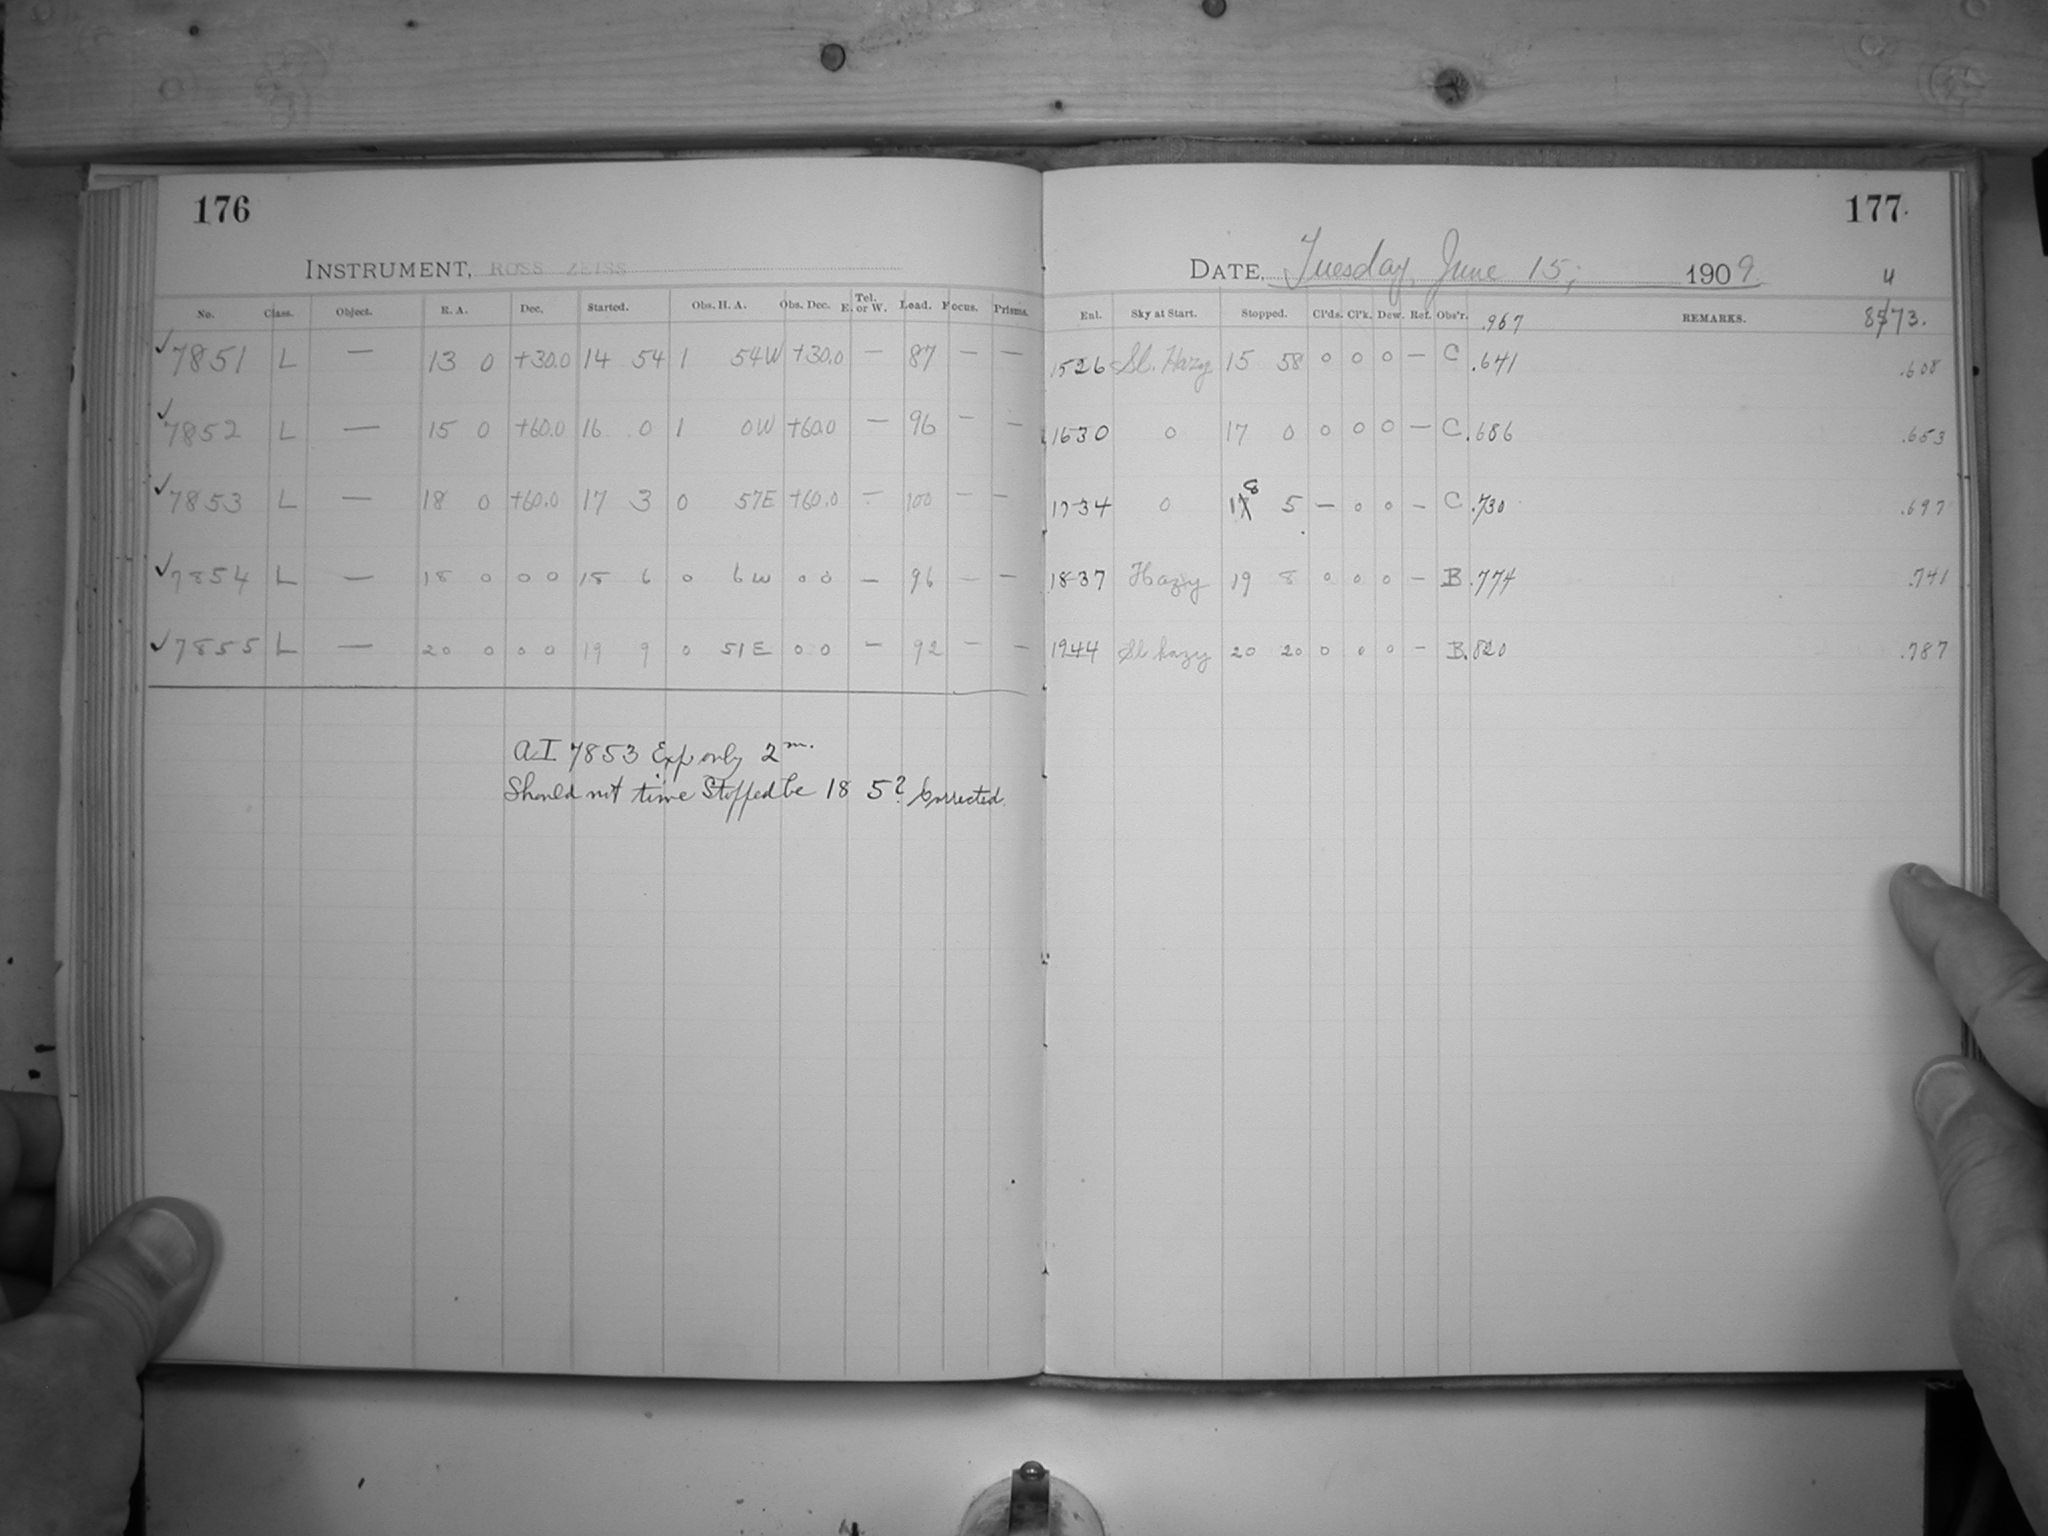 176
INSTRUMENT, ROSS ZEISS
No. Class. Object. R. A. Dec. Started. Obs. H. A. Obs. Dec. Tel. E. or W. Lead. Focus. Prisms.
✓ 7851 L — 13 0 +30.0 14 54 1 54W +30.0 — 87 — —
✓ 7852 L — 15 0 +60.0 16 0 1 0W +60.0 — 96 — —
✓ 7853 L — 18 0 +60.0 17 3 0 57E +60.0 — 100 — —
✓ 7854 L — 18 0 0 0 18 6 0 6W 0 0 — 96 — —
✓ 7855 L — 20 0 0 0 19 9 0 51E 0 0 — 92 — —
AI 7853 Exp only 2m.
Should not time Stopped be 18 5? Corrected.
177
DATE, Tuesday, June 15, 1909
4
Enl. Sky at Start. Stopped. Cl'ds. Cl'k. Dew. Ref. Obs'r. .967 REMARKS. 8573.
1526 Sl. Hazy 15 58 0 0 0 — C .641 .608
1630 0 17 0 0 0 0 — C .686 .653
8
1734 0 17 5 — 0 0 — C .730 .697
1837 Hazy 19 8 0 0 0 — B .774 .741
1944 Sl hazy 20 20 0 0 0 — B .820 .787